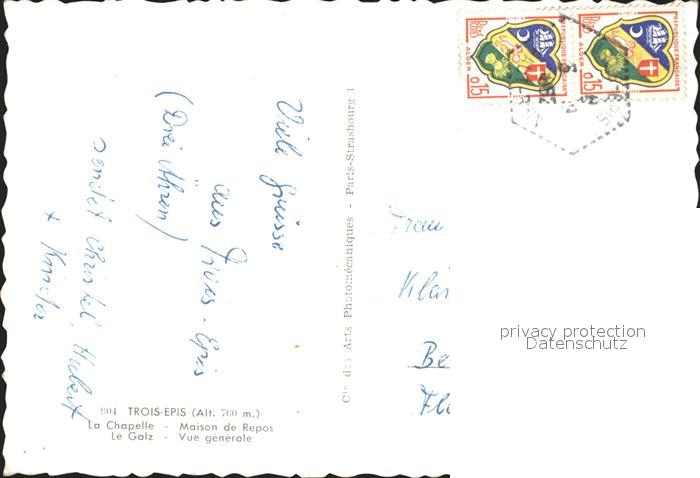 POSTES
RÉPUBLIQUE FRANÇAISE
ALGER
0,15
POSTES
RÉPUBLIQUE FRANÇAISE
ALGER
0,15
Viele Grüsse
aus Trois-Epis
(Drei Ähren)
sendet Christel, Hubert
+ Kinder
Cie des Arts Photomécaniques - Paris-Strasbourg 1
Frau
Be
privacy protection
Datenschutz
904 TROIS-EPIS (Alt. 700 m.)
La Chapelle - Maison de Repos
Le Galz - Vue générale